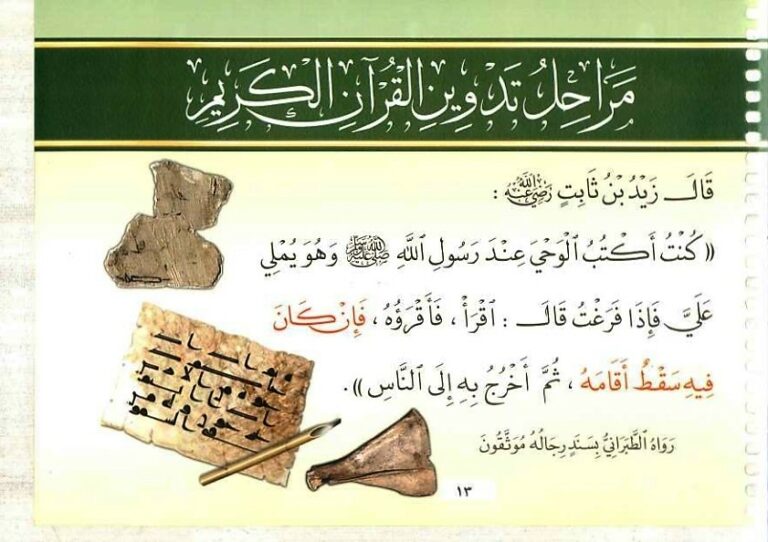 مَرَاحِلُ تَدْوِينِ القُرْآنِ الكَرِيمِ
قَالَ زَيْدُ بْنُ ثَابِتٍ رَضِيَ اللَّهُ عَنْهُ :
(( كُنْتُ أَكْتُبُ الْوَحْيَ عِنْدَ رَسُولِ اللَّهِ ﷺ وَهُوَ يُمْلِي
عَلَيَّ فَإِذَا فَرَغْتُ قَالَ : اقْرَأْ ، فَأَقْرَؤُهُ ، فَإِنْ كَانَ
فِيهِ سَقْطٌ أَقَامَهُ ، ثُمَّ أَخْرُجُ بِهِ إِلَى النَّاسِ )) .
رَوَاهُ الطَّبَرَانِيُّ بِسَنَدٍ رِجَالُهُ مُوَثَّقُونَ
١٣